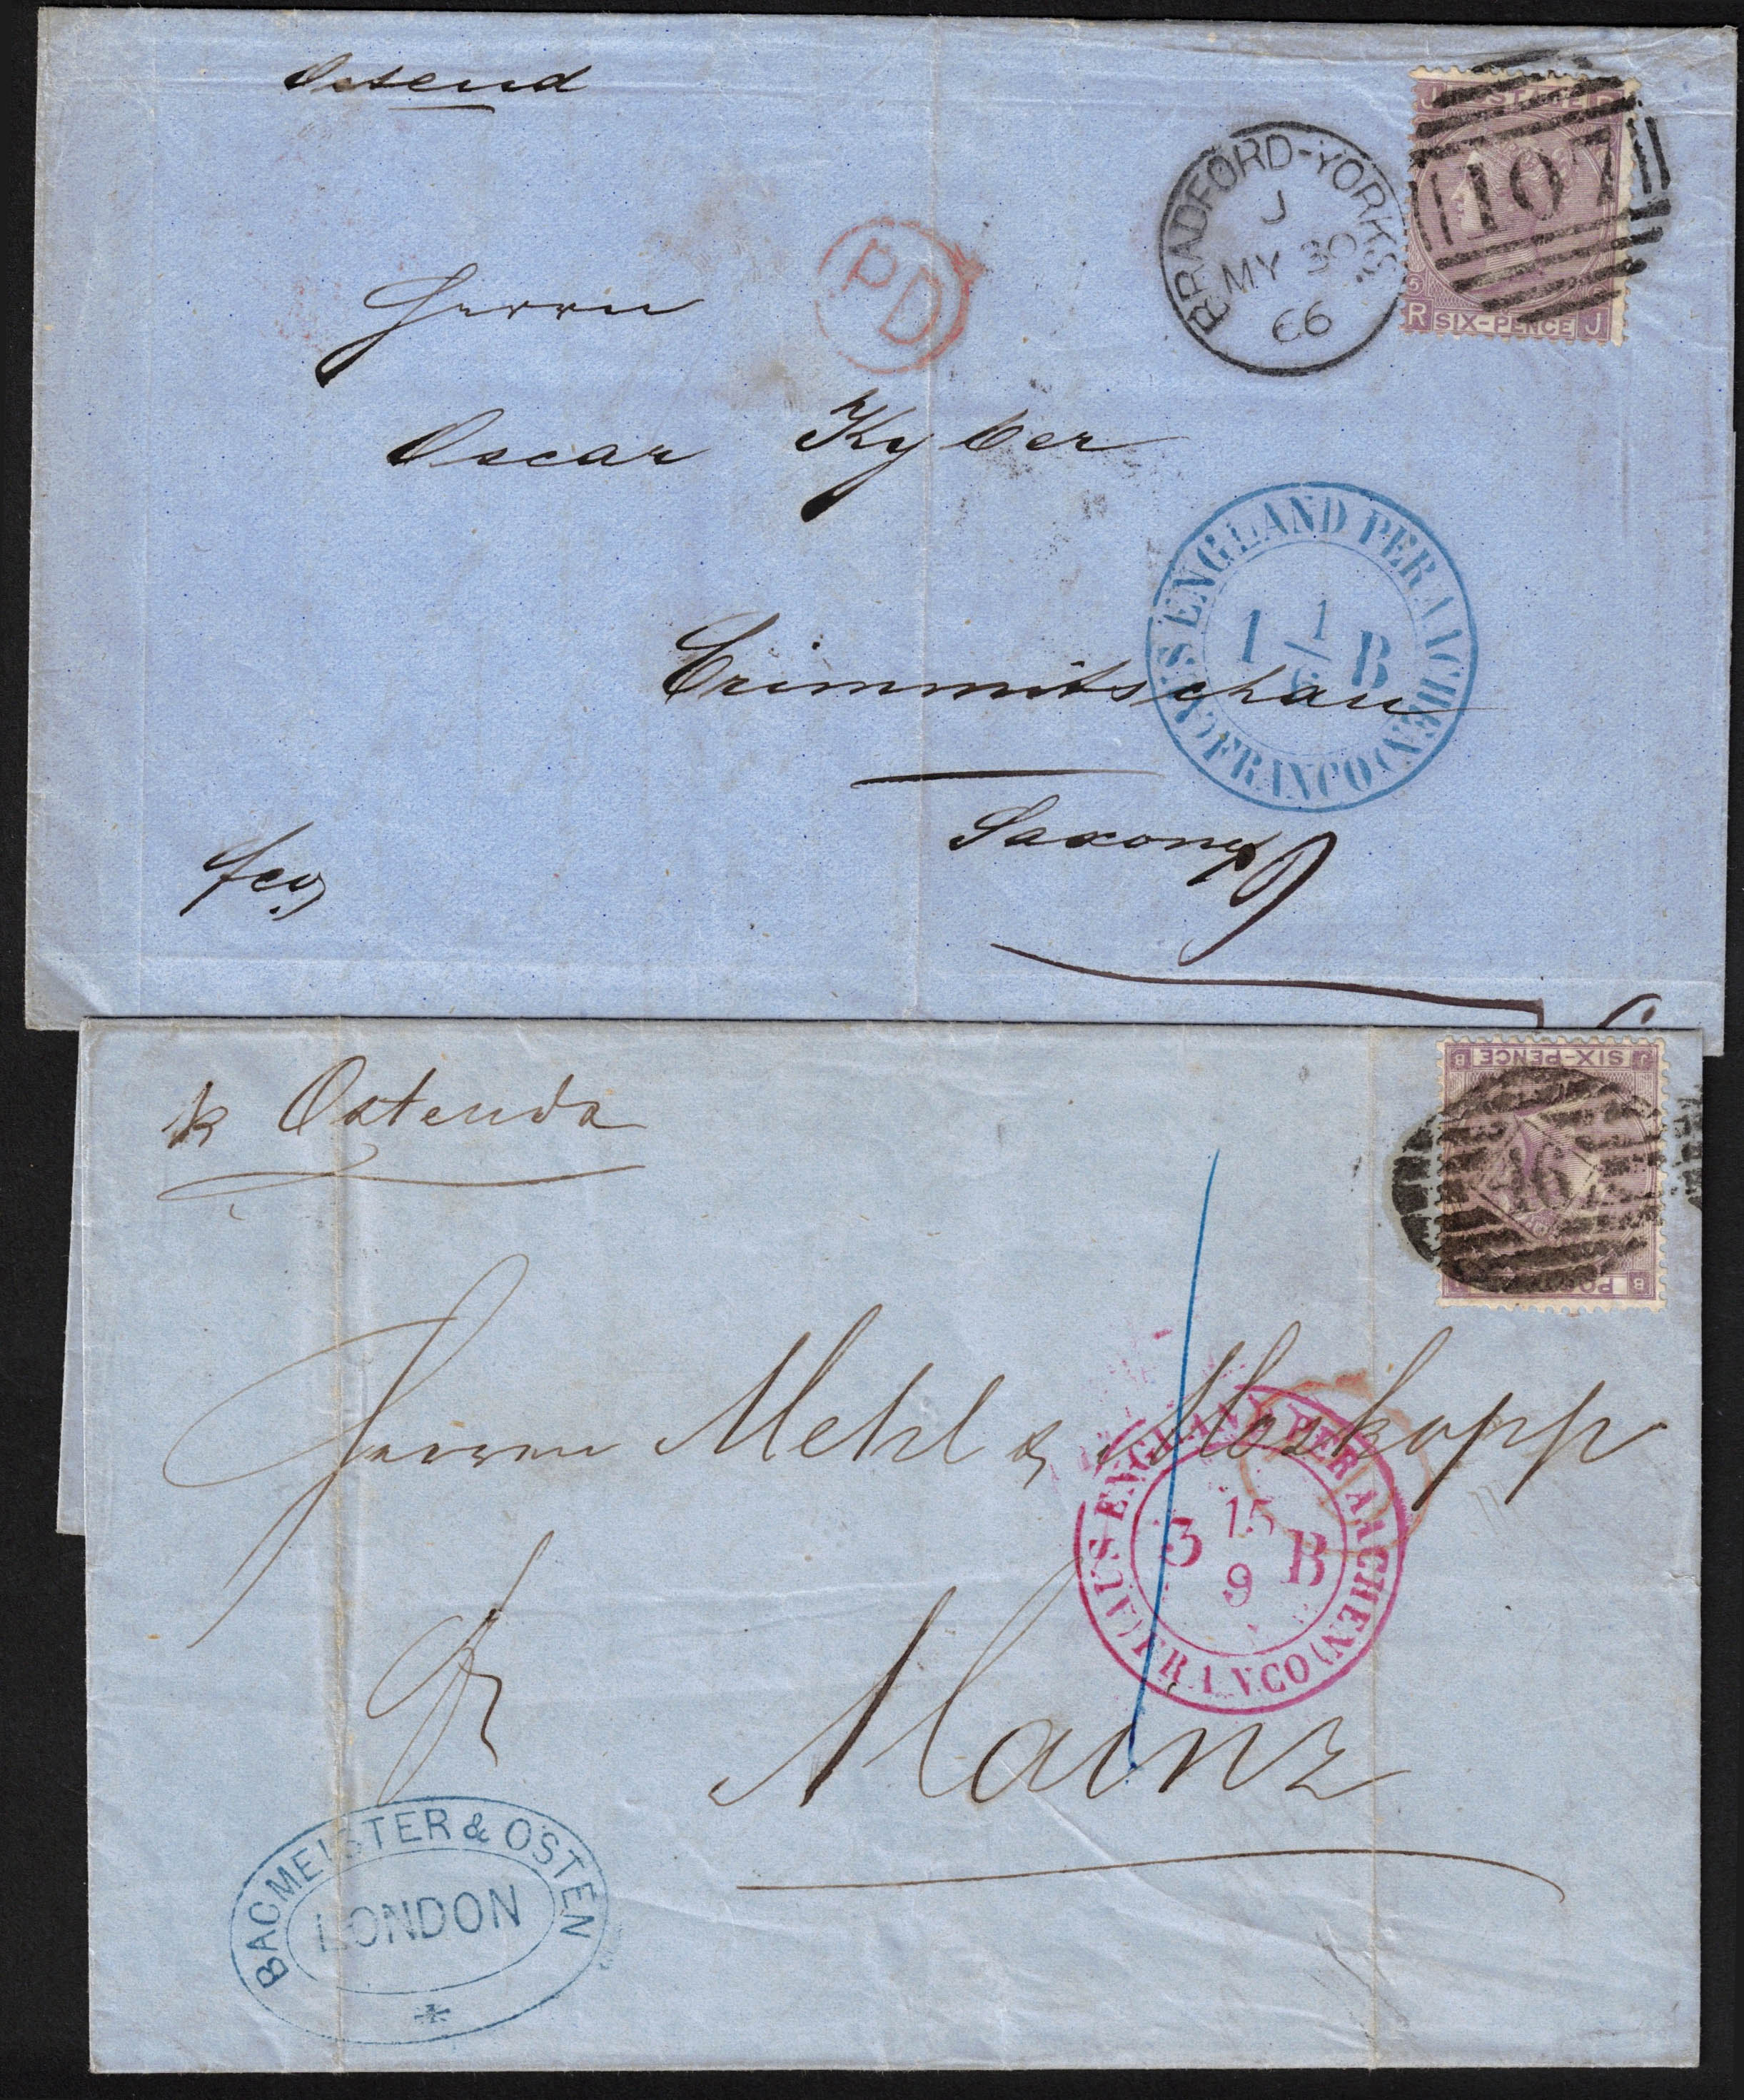 Ostend
BRADFORD-YORKS.
J
MY 30
66
J POSTAGE R
107
5
R SIX-PENCE J
PD
Herrn
Oscar Kyber
Crimmitschau
Saxony
fco
AUS ENGLAND PER AACHEN
1 1/6 B
FRANCO
p Ostende
B SIX-PENCE J
46
B
Herren Mehl & Moskopp
Mainz
AUS ENGLAND PER AACHEN
3 15/9 B
FRANCO
BACMEISTER & OSTEN
LONDON